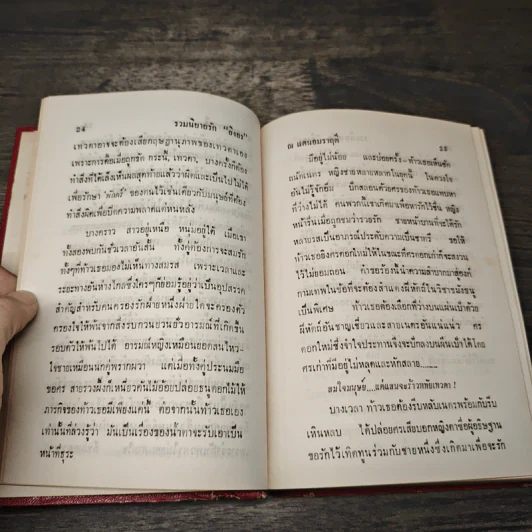 24 รวมนิยายรัก "อิงอร"
เทวดาอาจจะต้องเสียกฤษฎานุภาพของเทวดาเอง
เพราะการคิดเมื่อถูกรัก กระนี้, เทวดา, บางครั้งก็ต้อง
ทำสิ่งที่ได้เล็งเห็นผลสุดท้ายแล้วว่าผิดและเป็นไปไม่ได้
เพื่อรักษา "ศักดิ์" ของตนไว้เช่นเดียวกับมนุษย์ที่ต้อง
ทำสิ่งผิดเพื่อปิดความพลาดแต่หนหลัง
บางคราว สาวอยู่เหนือ หนุ่มอยู่ใต้ เมื่อเขา
ทั้งสองพบกันชั่วเวลาอันสั้น ทั้งคู่ต้องการจะสมรัก
ทั้งๆที่ท้าวเธอมองไม่เห็นทางสมรส เพราะเวลาและ
ระยะทางอันห่างไกลซึ่งใครๆก็ย่อมรู้อยู่ว่าเป็นอุปสรรค
สำคัญสำหรับคนครองรักฝ่ายหนึ่งฝ่ายใดจะครองตัว
ครองใจให้พ้นจากสิ่งรบกวนยวนยั่วอารมณ์ที่เกิดขึ้น
รอบตัวให้พ้นไปได้ อารมณ์หญิงเหมือนยอดสนไหว-
ใจชายเหมือนนกคู่พรากผมา แต่เมื่อทั้งคู่ประนมมือ
ขอศร สายรวงผึ้งก็เหนี่ยวคันไม้อ้อยปล่อยธนูดอกไม้ให้
ภารกิจของท้าวเธอมีเพียงแค่นี้ ต่อจากนั้นท้าวเธอเอง
เท่านั้นที่ล่วงรู้ว่า มันเป็นเรื่องของน้ำตาจะรับเอาเป็น
หน้าที่ธุระ
ณ แดนอมราฤดี 25
มีอยู่ไม่น้อย และบ่อยครั้ง-ท้าวเธอเห็นชัด
ถนัดเนตร หญิงชายหลายหลากในฤดูนี้ ในดวงใจ
อันไม่รู้จักอิ่ม มักสลอนด้วยศรของท้าวเธอแทบหา
ที่ว่างไม่ได้ คนพวกนี้เราเกิดมาเพื่อหารักไร้ชื่น หญิง
หน้ารื่นเมื่อถูกชมว่ารวยรัก ชายหน้าบานที่จะได้รัก
หลายรสเป็นอาภรณ์ประดับความเป็นชาตรี ขอให้
ท้าวเธอยิงศรดอกใหม่ให้ในขณะที่ศรดอกเก่าก็จะสงวน
ไว้ไม่ยอมถอน คำขอร้องนี้นำความลำบากมาสู่องค์
กามเทพในข้อที่จะต้องสำแดงฝีหัตถ์ในวิชายิงธนู
เป็นพิเศษ ท้าวเธอต้องเลือกที่ว่างบนแผ่นเป้าด้วย
ฝีหัตถ์อันชาญเชี่ยวและสายเนตรอันแน่แน่ว ศร
ดอกใหม่ซึ่งจำใจประทานจึงจะปักลงบนผืนเป้าได้โดย
ศรเก่าที่มีอยู่ไม่หลุดและหักสลาย.......
สมใจมนุษย์....แต่แสนจะร้าวหทัยเทวดา !
บางเวลา ท้าวเธอต้องรีบหลับเนตรพร้อมกับรีบ
เหินหลบ ได้ปล่อยศรเสียบอกหญิงคาซื่อผู้อธิษฐาน
ขอรักไว้เทิดทูนร่วมกับชายหนึ่งซึ่งเกิดมาเพื่อจะรัก